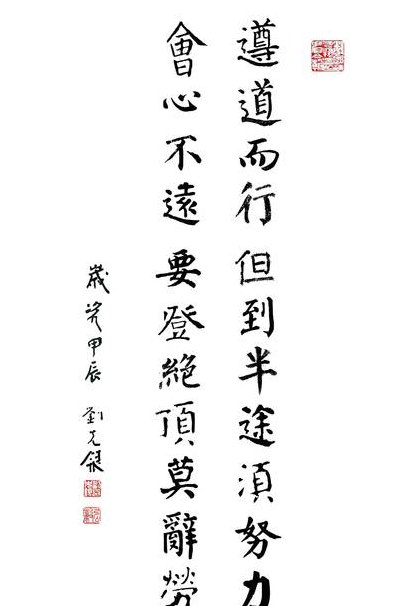 遵道而行但到半途須努力
會心不遠要登絕頂莫辭勞
歲次甲辰 劉克